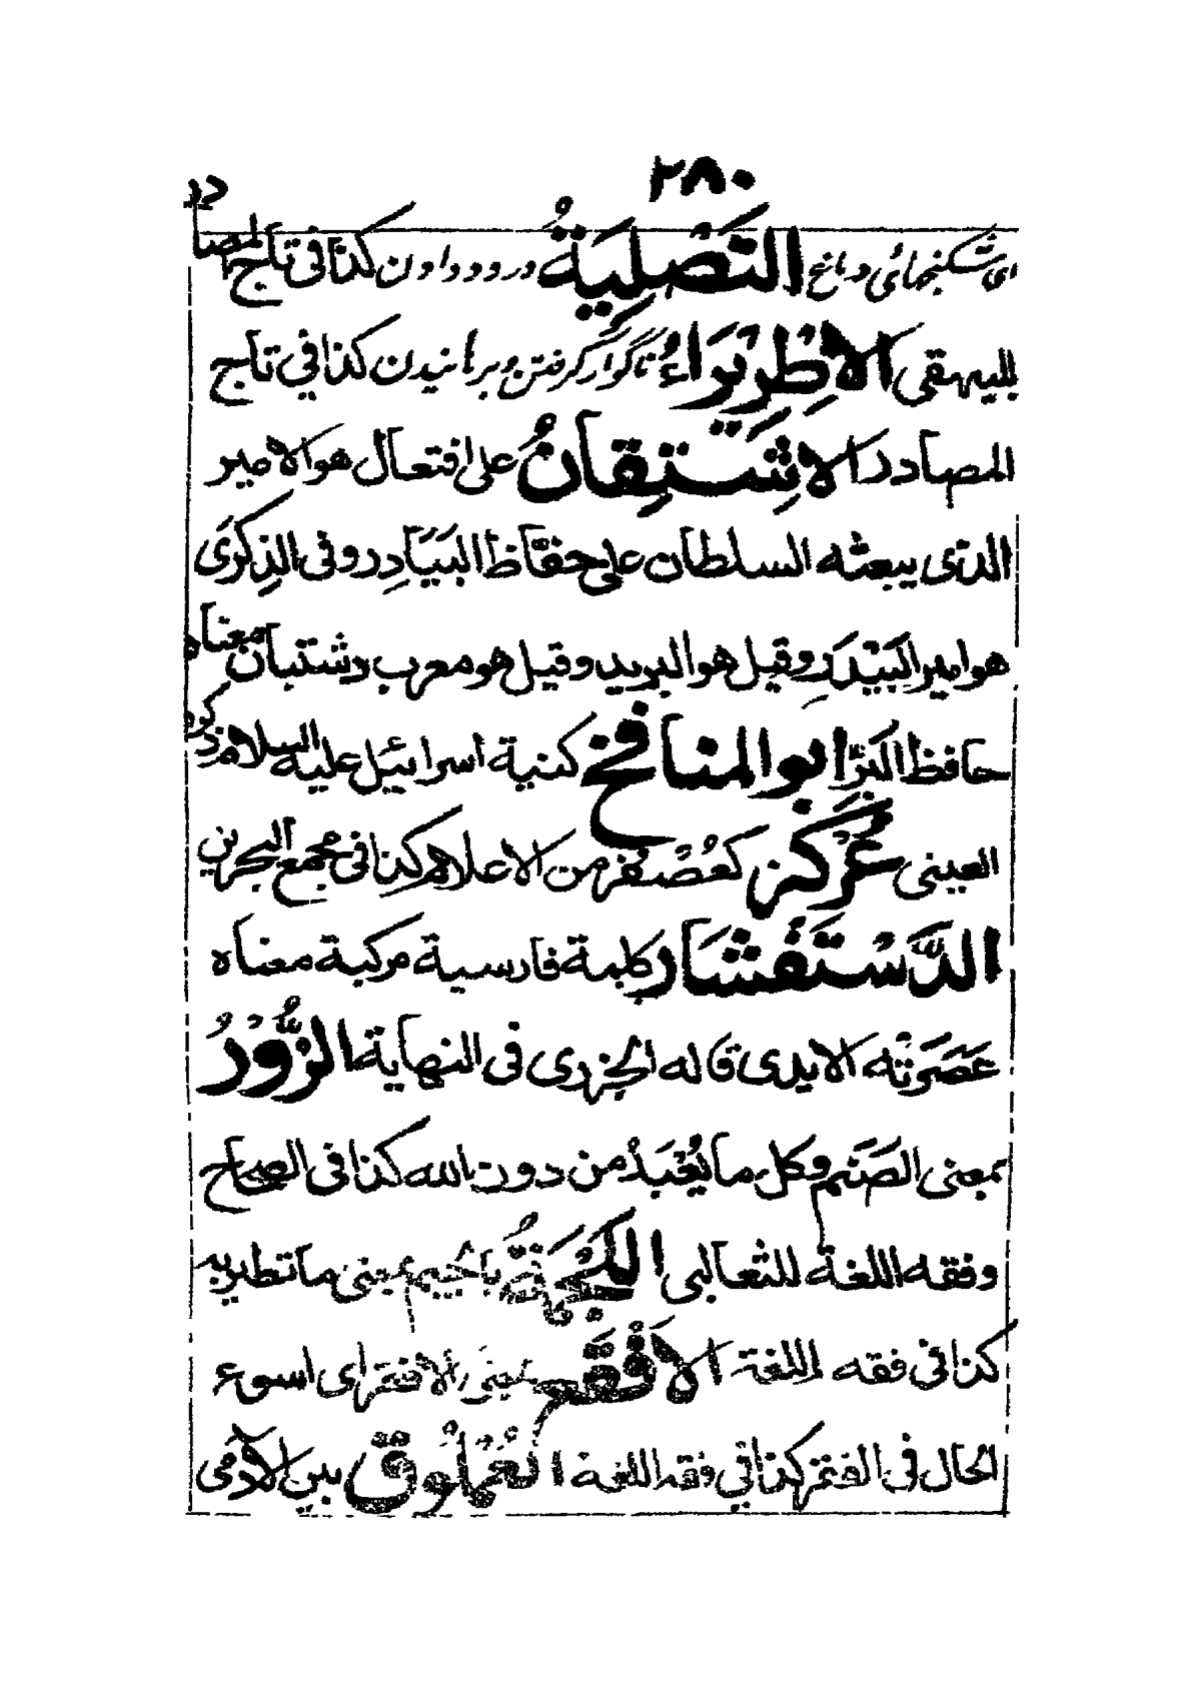 ٢٨٠
ای شکنجهائی دماغ التَصْلِيَةُ درود دادن کذا فی تاج المصادر
للبیهقی الاِطْرِيْرَاءُ ناگوار گرفتن و برمانیدن کذا فی تاج
المصادر الاشتِقانُ علی افتعال هو الامیر
الذی یبعثه السلطان علی حفّاظ البَیَادِر وفی الذِکرَی
هو امیر البَیْدَرِ وقیل هو البرید وقیل هو معرب دشتبان معناه
حافظ البَرِّ ابو المنافخ کنیة اسرائیل علیه السلام ذکره
العینی عُرْکُز کعُصْفُر من الاعلام کذا فی مجمع البحرین
الدَّسْتَفْشَار کلمة فارسیة مرکبة معناه
عَصَرَتْه الایدی قاله الجزری فی النهایة الزُّوْرُ
بمعنی الصَنَم وکل ما یُعْبَدُ من دون الله کذا فی الصحاح
وفقه اللغة للثعالبی بالجیم بمعنی ما تطیر به
کذا فی فقه اللغة الاَفْقَم بمعنی الافقر ای اسوء
الحال فی الفقر کذا فی فقه اللغة العُمْلُوق بین الآدمی